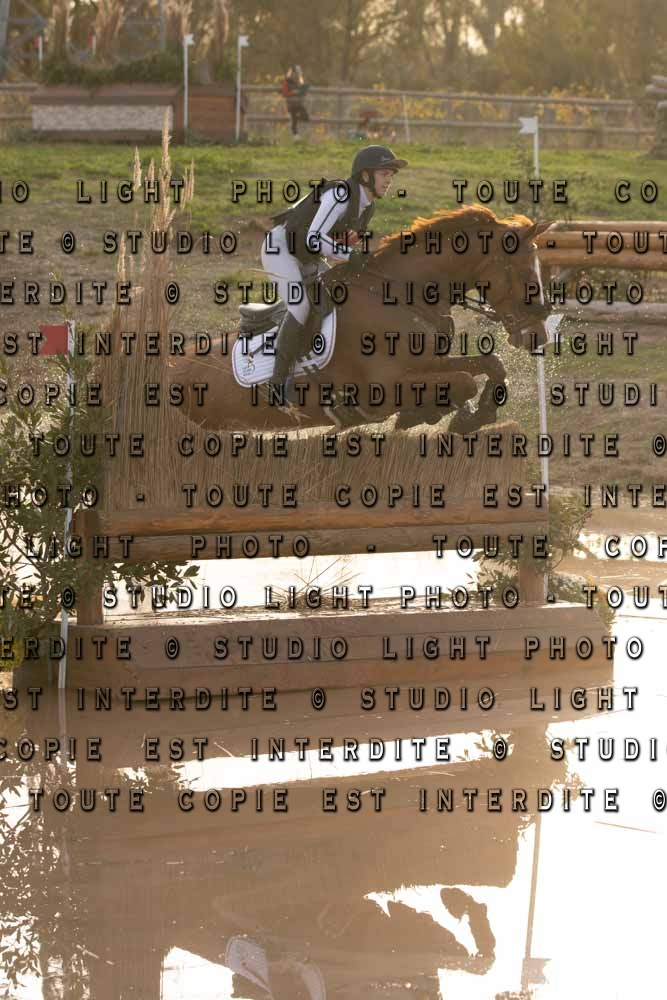 IO LIGHT PHOTO - TOUTE CO
TE © STUDIO LIGHT PHOTO - TOUT
ERDITE © STUDIO LIGHT PHOTO
EST INTERDITE © STUDIO LIGHT
COPIE EST INTERDITE © STUDIO
TOUTE COPIE EST INTERDITE ©
PHOTO - TOUTE COPIE EST INTE
LIGHT PHOTO - TOUTE COP
© STUDIO LIGHT PHOTO - TOUT
ERDITE © STUDIO LIGHT PHOTO
EST INTERDITE © STUDIO LIGHT
COPIE EST INTERDITE © STUDIO
TOUTE COPIE EST INTERDITE ©